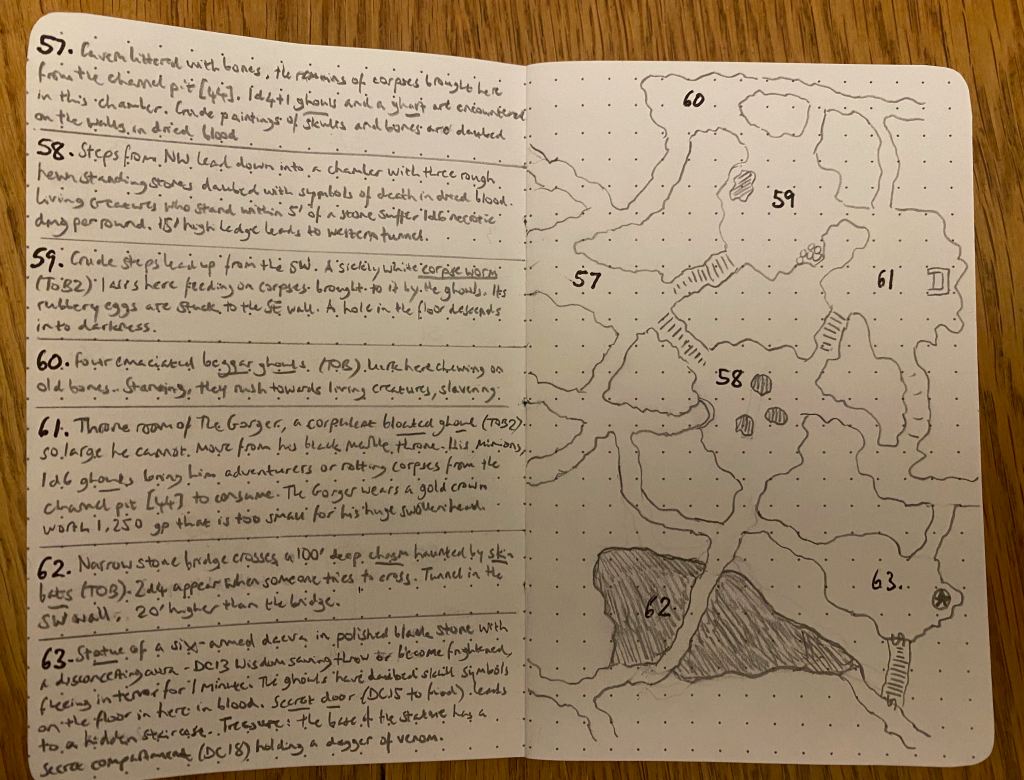 57. Cavern littered with bones, the remains of corpses brought here
from the channel pit [44]. 1d4+1 ghouls and a ghast are encountered
in this chamber. Crude paintings of skulls and bones are daubed
on the walls in dried blood
58. Steps from NW lead down into a chamber with three rough
hewn standing stones daubed with symbols of death in dried blood.
Living creatures who stand within 5' of a stone suffer 1d6 necrotic
dmg per round. 15' high ledge leads to western tunnel.
59. Crude steps lead up from the SW. A sickly white corpse worm
(TOB2) lairs here feeding on corpses brought to it by the ghouls. Its
rubbery eggs are stuck to the SE wall. A hole in the floor descends
into darkness.
60. Four emaciated beggar ghouls (TOB) lurk here chewing on
old bones. Starving, they rush towards living creatures, slavering.
61. Throne room of The Gorger, a corpulent bloated ghoul (TOB2)
so large he cannot move from his black marble throne. His minions,
1d6 ghouls bring him adventurers or rotting corpses from the
channel pit [44] to consume. The Gorger wears a gold crown
worth 1,250 gp that is too small for his huge swollen head.
62. Narrow stone bridge crosses a 100' deep chasm haunted by skin
bats (TOB). 2d4 appear when someone tries to cross. Tunnel in the
SW wall, 20' higher than the bridge.
63. Statue of a six-armed daeva in polished black stone with
a disconcerting aura - DC13 Wisdom saving throw or become frightened,
fleeing in terror for 1 minute. The ghouls have daubed skull symbols
on the floor in here in blood. Secret door (DC15 to find) leads
to a hidden staircase. Treasure: the base of the statue has a
secret compartment (DC18) holding a dagger of venom.
60
59
57
61
58
63.
62
S
S